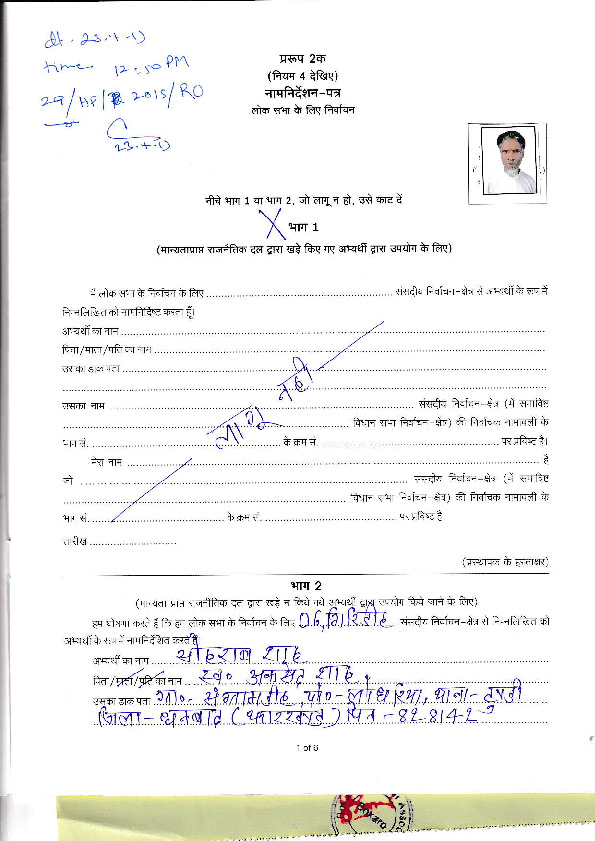 time. 12:50 PM
2015/RO
प्ररूप 2क
(नियम 4 देखिए)
नामनिर्देशन-पत्र
लोक सभा के लिए निर्वाचन
नीचे भाग 1 या भाग 2, जो लागू न हो, उसे काट दें
भाग 1
(मान्यताप्राप्त राजनैतिक दल द्वारा खड़े किए गए अभ्यर्थी द्वारा उपयोग के लिए)
मैं लोक सभा के निर्वाचन के लिए ........ संसदीय निर्वाचन-क्षेत्र से अभ्यर्थी के रूप में
निम्नलिखित को नामनिर्दिष्ट करता हूँ।
अभ्यर्थी का नाम ........
पिता/माता/पति का नाम ........
उसका डाक पता ........
लागू नही
उसका नाम ........ संसदीय निर्वाचन-क्षेत्र (में समाविष्ट
........ विधान सभा निर्वाचन-क्षेत्र) की निर्वाचक नामावली के
भाग सं. ........ के क्रम सं. ........ पर प्रविष्ट है।
मेरा नाम ........ है
जो ........ संसदीय निर्वाचन-क्षेत्र (में समाविष्ट
........ विधान सभा निर्वाचन-क्षेत्र) की निर्वाचक नामावली के
भाग सं. ........ के क्रम सं. ........ पर प्रविष्ट है
तारीख ........
(प्रस्थापक के हस्ताक्षर)
भाग 2
(मान्यता प्राप्त राजनैतिक दल द्वारा खड़े न किये गये अभ्यर्थी द्वारा उपयोग किये जाने के लिए)
हम घोषणा करते हैं कि हम लोक सभा के निर्वाचन के लिए 06 गिरिडीह संसदीय निर्वाचन-क्षेत्र से निम्नलिखित को
अभ्यर्थी के रूप में नामनिर्देशित करते हैं
अभ्यर्थी का नाम शाह
पिता/माता/पति का नाम स्व० शाह
उसका डाक पता पो०- थाना-
जिला-धनबाद (झारखण्ड) पिन -82-814-2
1 of 6